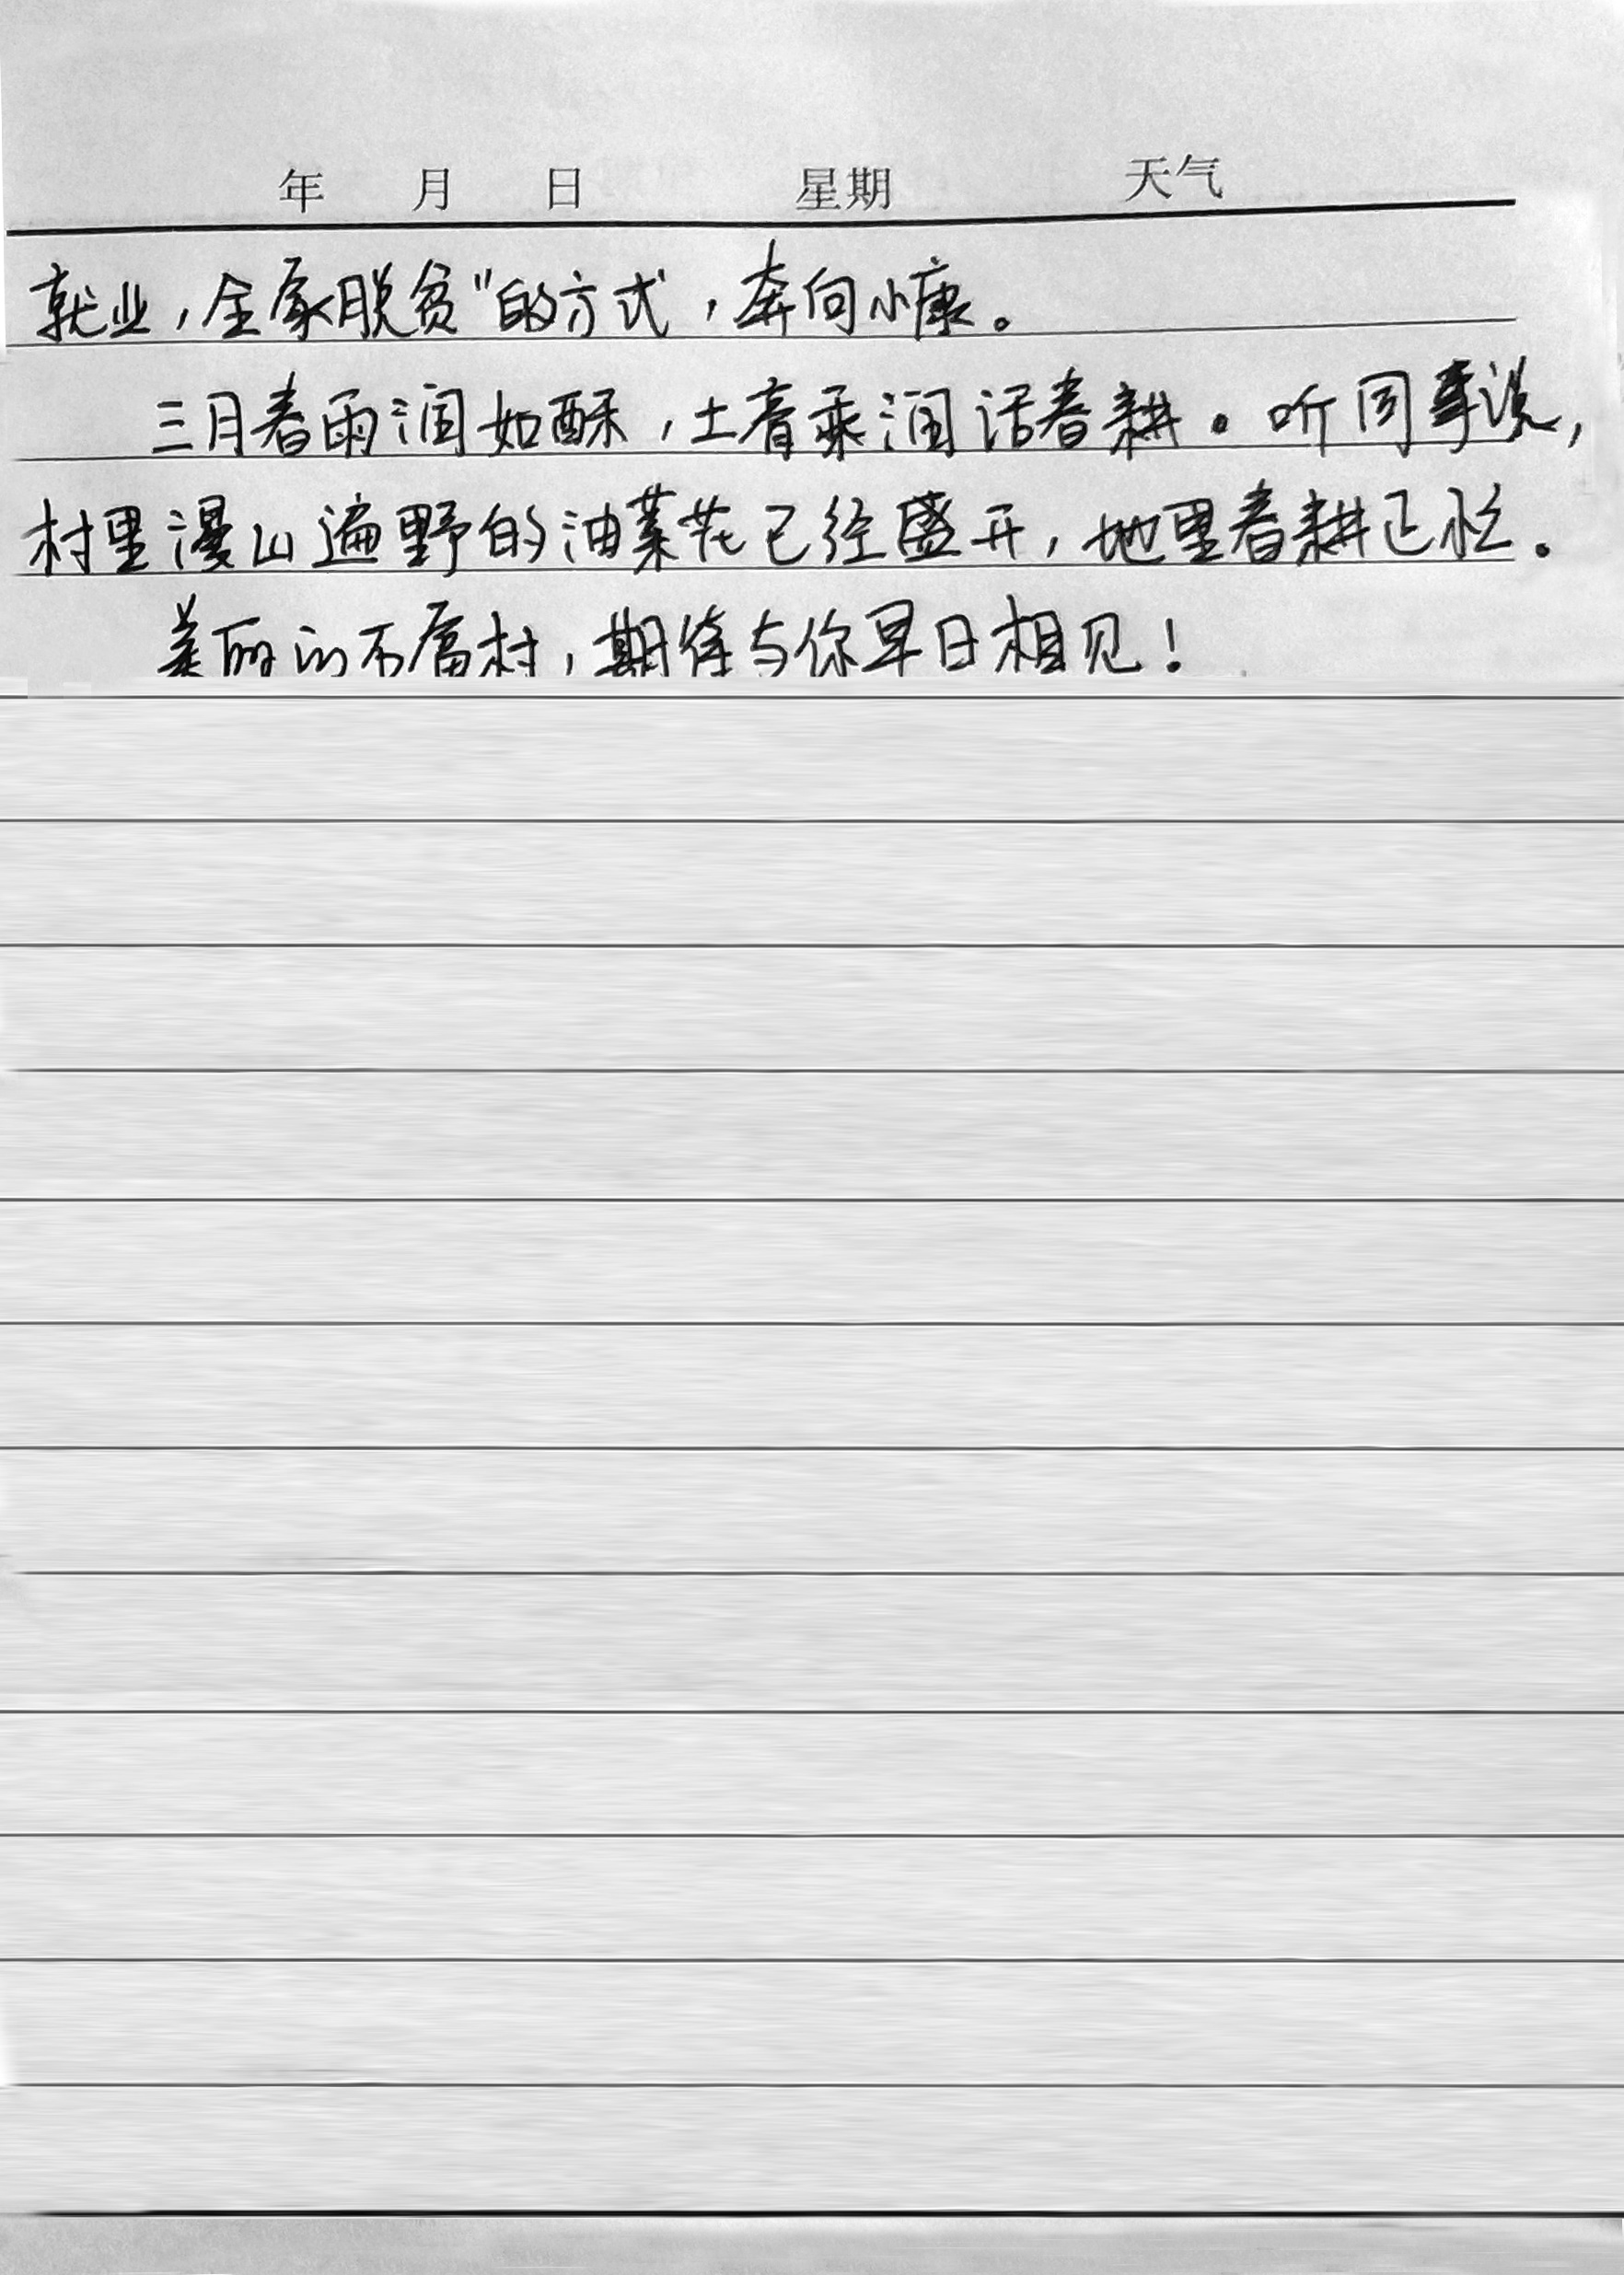 年 月 日 星期 天气
就业，全家脱贫”的方式，奔向小康。
三月春雨润如酥，土膏乘润话春耕。听同事说，
村里漫山遍野的油菜花已经盛开，地里春耕正忙。
美丽的不富村，期待与你早日相见！